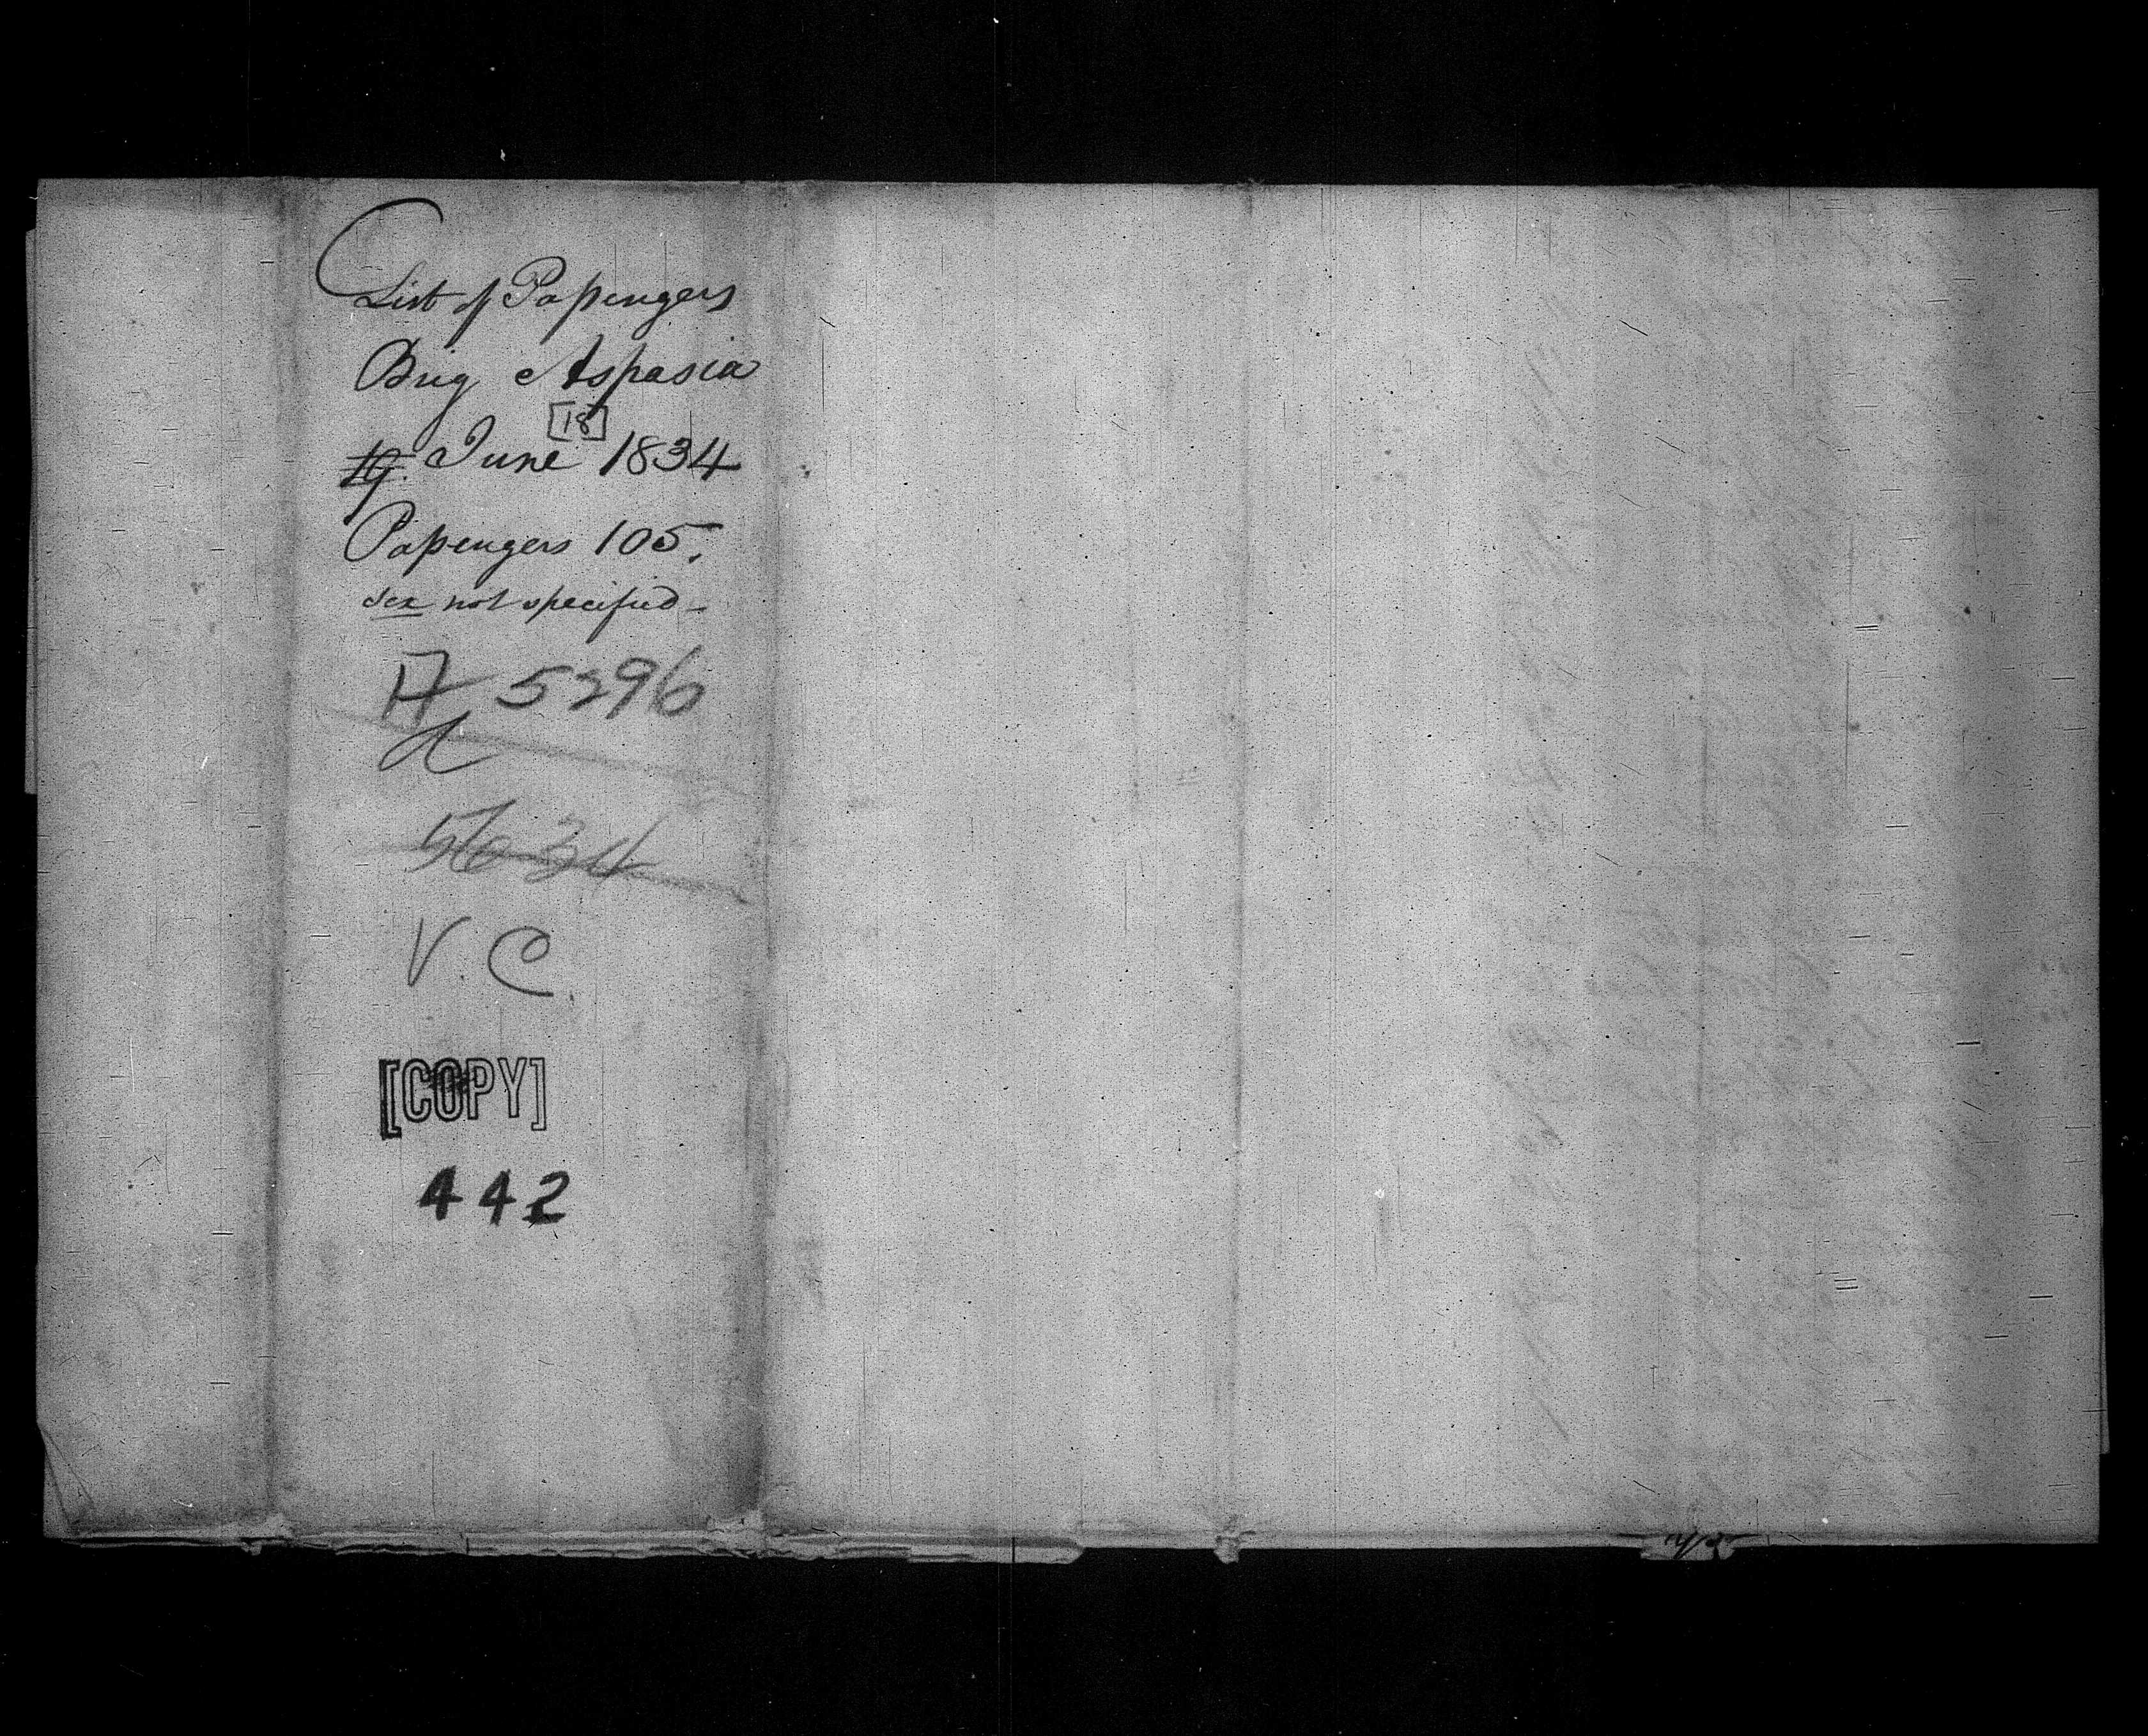 List of Passengers
Brig Aspasia
[18]
19. June 1834
Passengers 105.
Sex not specified -
5296
5634
V. C.
[COPY]
442